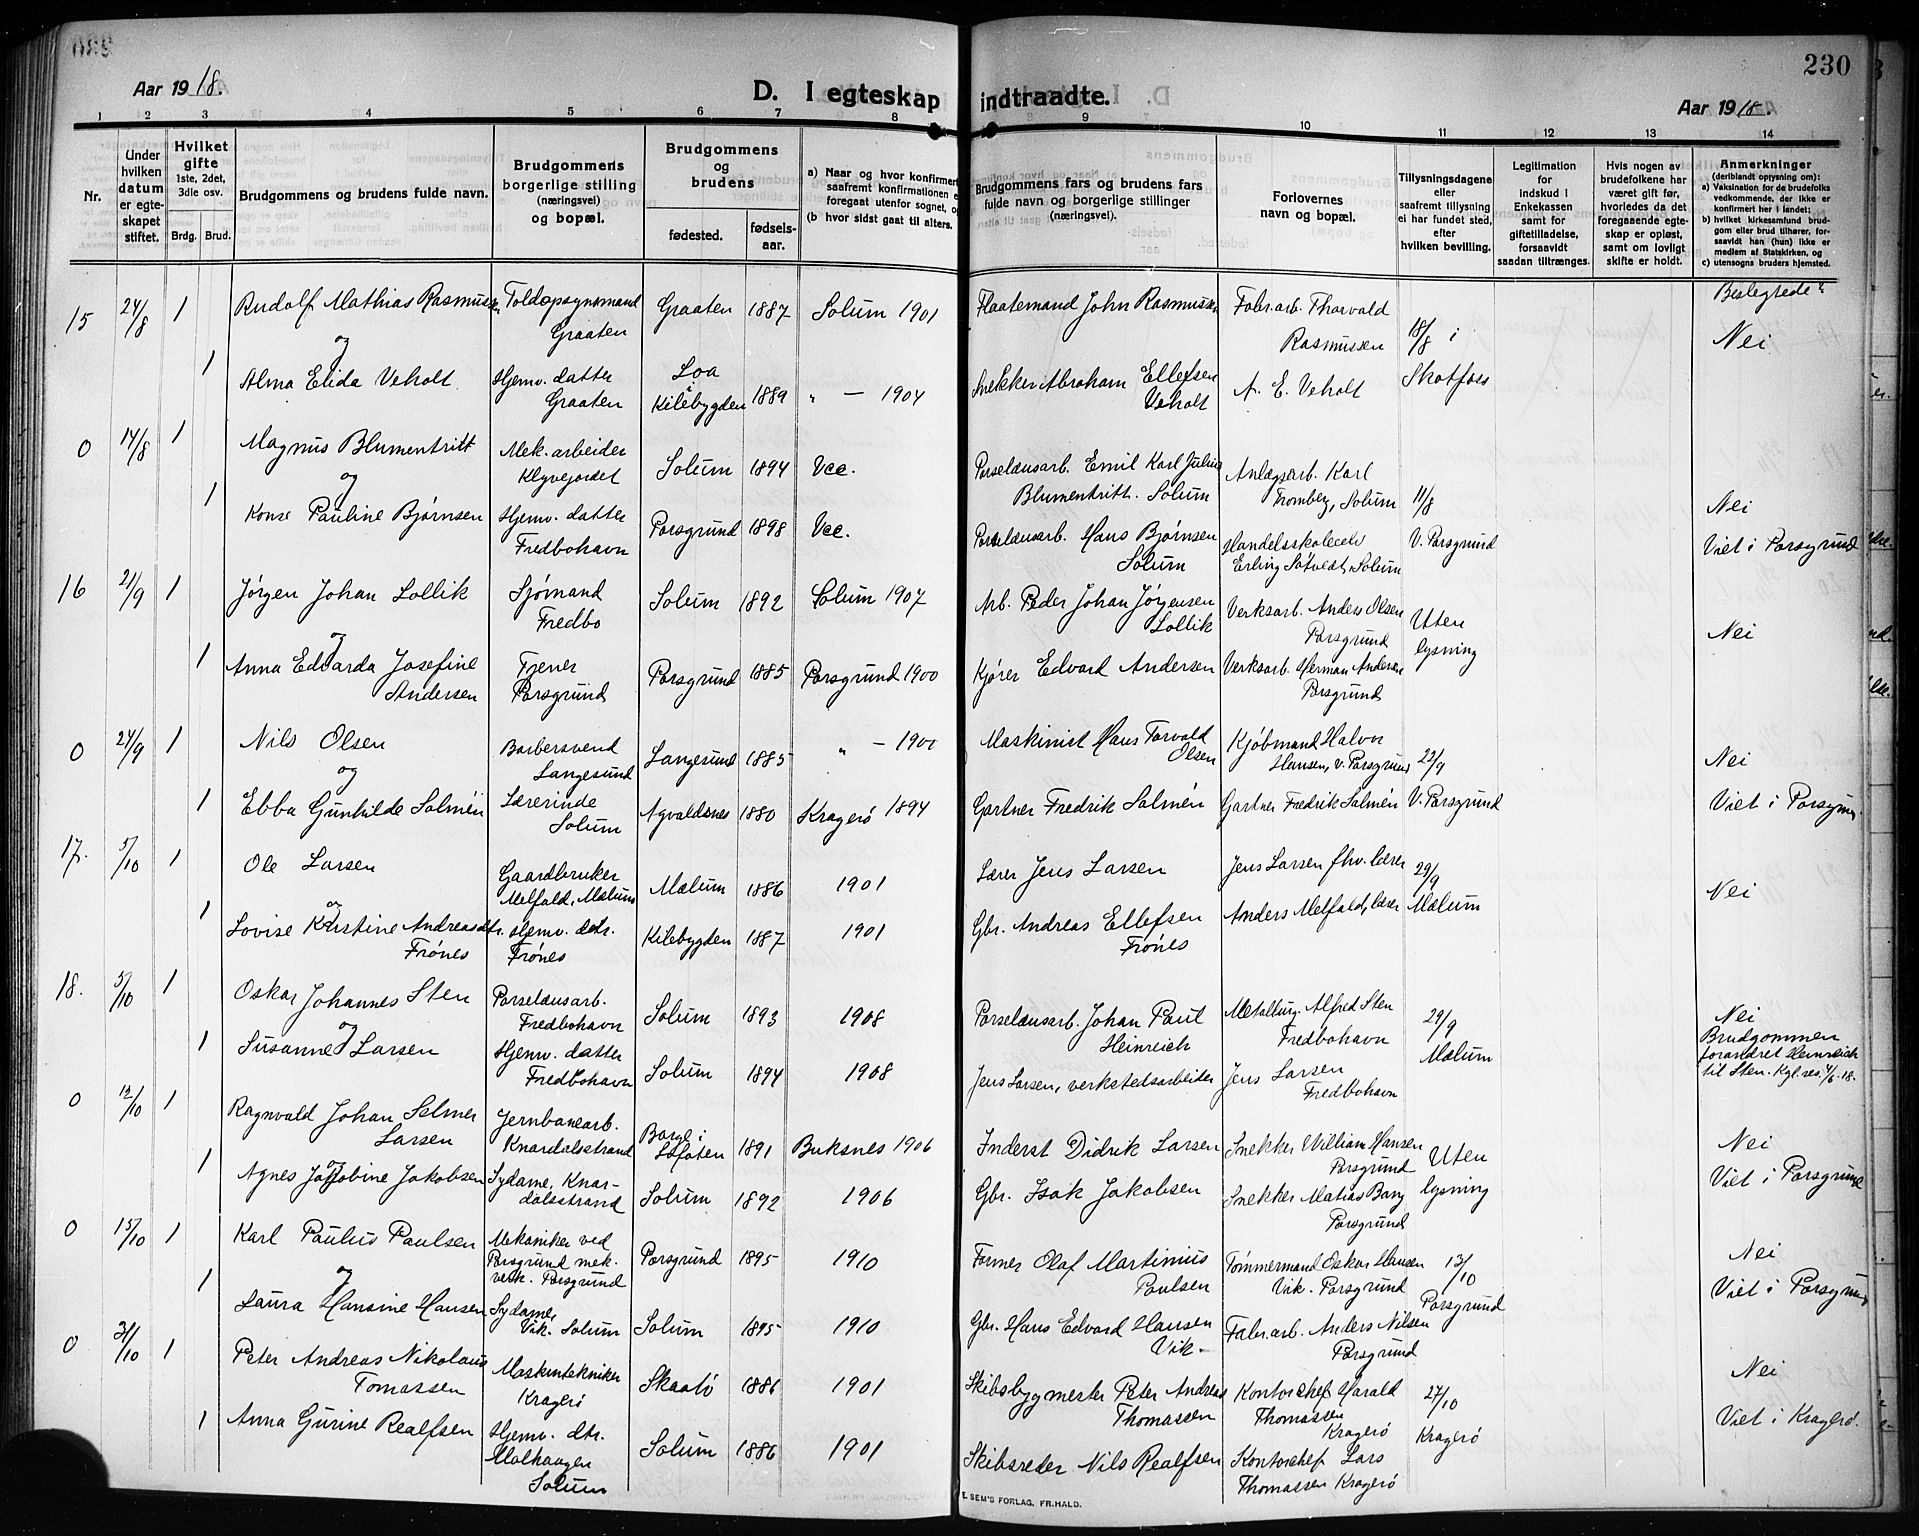 230
Aar 1918.
D. I egteskap indtraadte.
Aar 1918.
1 2 3 4 5 6 7 8 9 10 11 12 13 14
Nr.
Under hvilken datum er egteskapet stiftet.
Hvilket gifte 1ste, 2det, 3die osv.
Brdg. Brud.
Brudgommens og brudens fulde navn.
Brudgommens borgerlige stilling (næringsvei) og bopæl.
Brudgommens og brudens
fødested. fødsels-aar.
a) Naar og hvor konfirmert
saafremt konfirmationen e
foregaat utenfor sognet, o
(b hvor sidst gaat til alters.
Brudgommens fars og brudens fars
fulde navn og borgerlige stillinger
(næringsvei).
Forlovernes
navn og bopæl.
Tillysningsdagene
eller
saafremt tillysning
ei har fundet sted,
efter
hvilken bevilling.
Legitimation
for
indskud i
Enkekassen
samt for
giftetilladelse,
forsaavidt
saadan tiltrænges.
Hvis nogen av
brudefolkene har
været gift før,
hvorledes da det
foregaaende egte-
skap er opløst,
samt om lovligt
skifte er holdt.
Anmerkninger
(deriblandt opysning om):
a) Vaksination for de brudefolks
vedkommende, der ikke er
konfirmert her i landet;
b) hvilket kirkesamfund brud-
gom eller brud tilhører, for-
saavidt han (hun) ikke er
medlem af Statskirken, og
c) utensogns bruders hjemsted.
15 24/8 1 Rudolf Mathias Rasmussen Toldopsynsmand Graaten Graaten 1887 Solum 1901 Flaatemand John Rasmussen Fabr.arb. Thorvald Rasmussen 18/8 i Beslegtede:
Nei
og
1 Alma Elida Veholt Hjemv. datter Graaten Loa i Kilebygden 1889 " — 1904 Snekker Abraham Ellefsen Veholt A. E. Veholt Skotfoss
0 14/8 1 Magnus Blumentritt Mek. arbeider Klyvejordet Solum 1894 Vcc. Porselænsarb. Emil Karl Julius Blumentritt. Solum Anlægsarb. Karl Tromberg, Solum 11/8 Nei
og
1 Konse Pauline Bjørnsen Hjemv. datter Fredbohavn Porsgrund 1898 Vcc. Porselænsarb. Hans Bjørnsen Solum Handelsskoleelev Erling Søtvedt, Solum V. Porsgrund Viet i Porsgrund
16 21/9 1 Jørgen Johan Lollik Sjømand Fredbo Solum 1892 Solum 1907 Arb. Peder Johan Jørgensen Lollik Verksarb. Anders Olsen Porsgrund Uten lysning Nei
og
1 Anna Edvarda Josefine Andersen Tjener Porsgrund Porsgrund 1885 Porsgrund 1900 Kjører Edvard Andersen Verksarb. Herman Andersen Porsgrund
0 24/9 1 Nils Olsen Barbersvend Langesund Langesund 1885 " — 1900 Maskinist Hans Torvald Olsen Kjøbmand Halvor Hansen, v. Porsgrund 22/9 Nei
og
1 Ebba Gunhilde Salmén Lærerinde Solum Agvaldsnes 1880 Kragerø 1894 Gartner Fredrik Salmén Gartner Fredrik Salmén V. Porsgrund Viet i Porsgrun
17. 5/10 1 Ole Larsen Gaardbruker Melfald, Mælum Mælum 1886 1901 Lærer Jens Larsen Jens Larsen fhv. lærer 29/9 Nei
og
1 Lovise Kirstine Andreasdtr. Frønes Hjemv. dtr. Frønes Kilebygden 1887 1901 Gbr. Andreas Ellefsen Frønes Anders Melfald, lærer Mælum
18. 5/10 1 Oskar Johannes Sten Porselænsarb. Fredbohavn Solum 1893 1908 Porselænsarb. Johan Paul Heinreich Metallurg. Alfred Sten Fredbohavn 29/9 Nei
og
1 Susanne Larsen Hjemv. datter Fredbohavn Solum 1894 1908 Jens Larsen, verkstedsarbeider Jens Larsen Fredbohavn Mælum Brudgommen forandret Heinreich til Sten. Kgl. res. 4/6-18.
0 12/10 1 Ragnvald Johan Selmer Larsen Jernbanearb. Knardalsstrand Borge i Lofoten 1891 Buksnes 1906 Inderst Didrik Larsen Snekker William Hansen Porsgrund Uten lysning Nei
og
1 Agnes Jakobine Jakobsen Sydame, Knardalsstrand Solum 1892 1906 Gbr. Isak Jakobsen Snekker Matias Bang Porsgrund Viet i Porsgrund
0 15/10 1 Karl Paulus Paulsen Mekaniker ved Porsgrund mek. verk. Porsgrund Porsgrund 1895 1910 Former Olaf Martinius Paulsen Tømmermand Oskar Hansen Vik. Porsgrund 13/10 Nei
og
1 Laura Hansine Hansen Sydame, Vik. Solum Solum 1895 1910 Gbr. Hans Edvard Hansen Vik - Fabr.arb. Anders Nilsen Porsgrund Porsgrund Viet i Porsgrund
0 31/10 1 Peter Andreas Nikolaus Tomassen Maskintekniker Kragerø Skaatø 1886 1901 Skibsbygmester Peter Andreas Thomassen Kontorchef Harald Thomassen Kragerø 27/10 Nei
1 Anna Gurine Realfsen Hjemv. dtr. Molhaugen Solum Solum 1886 1901 Skibsreder Nils Realfsen Kontorchef Lars Thomassen Kragerø Kragerø Viet i Kragerø.
E. SEM'S FORLAG, FR.HALD.